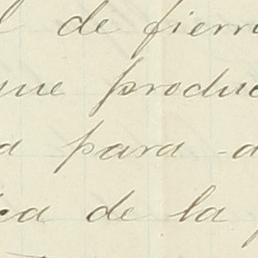 l de fierr
que produc
a para
ca de la